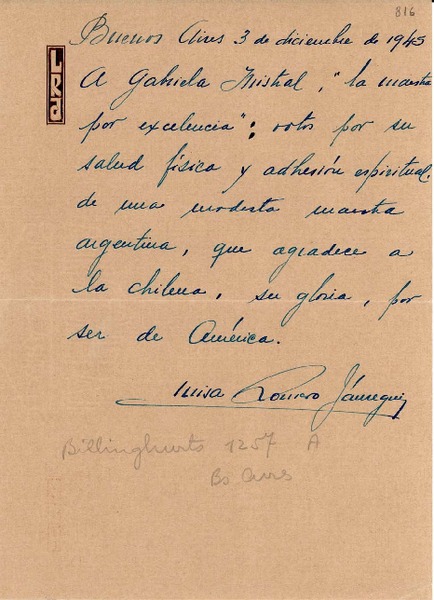 816
Buenos Aires 3 de diciembre de 1945
A Gabriela Mistral, "la maestra
por excelencia": votos por su
salud física y adhesión espiritual
de una modesta maestra
argentina, que agradece a
la chilena, su gloria, por
ser de América.
Luisa Romero Jáuregui
Billinghurts 1257 A
Bs Aires